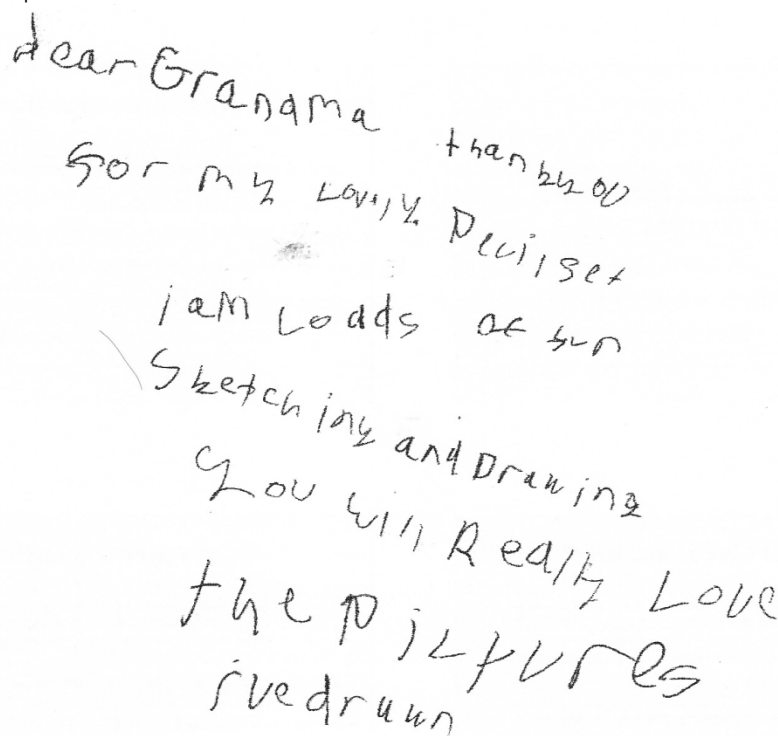 dear Grandma thankyou
for my Lovily Pecilset
i am Loads of fun
Sketching and Drawing
You will Really Love
the Pictures
ivedrawn